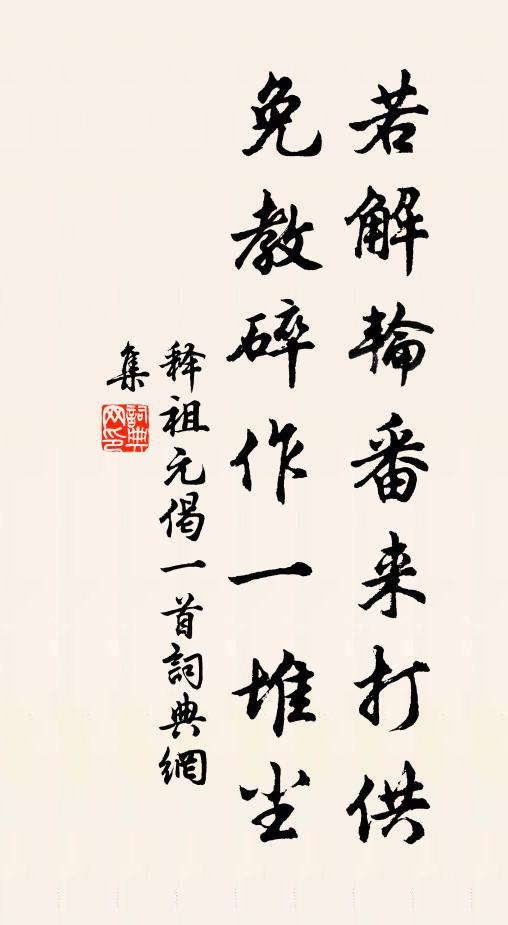 若解輪番来打供
免教碎作一堆尘
释祖元偈一首詞典網
集
詞典网印